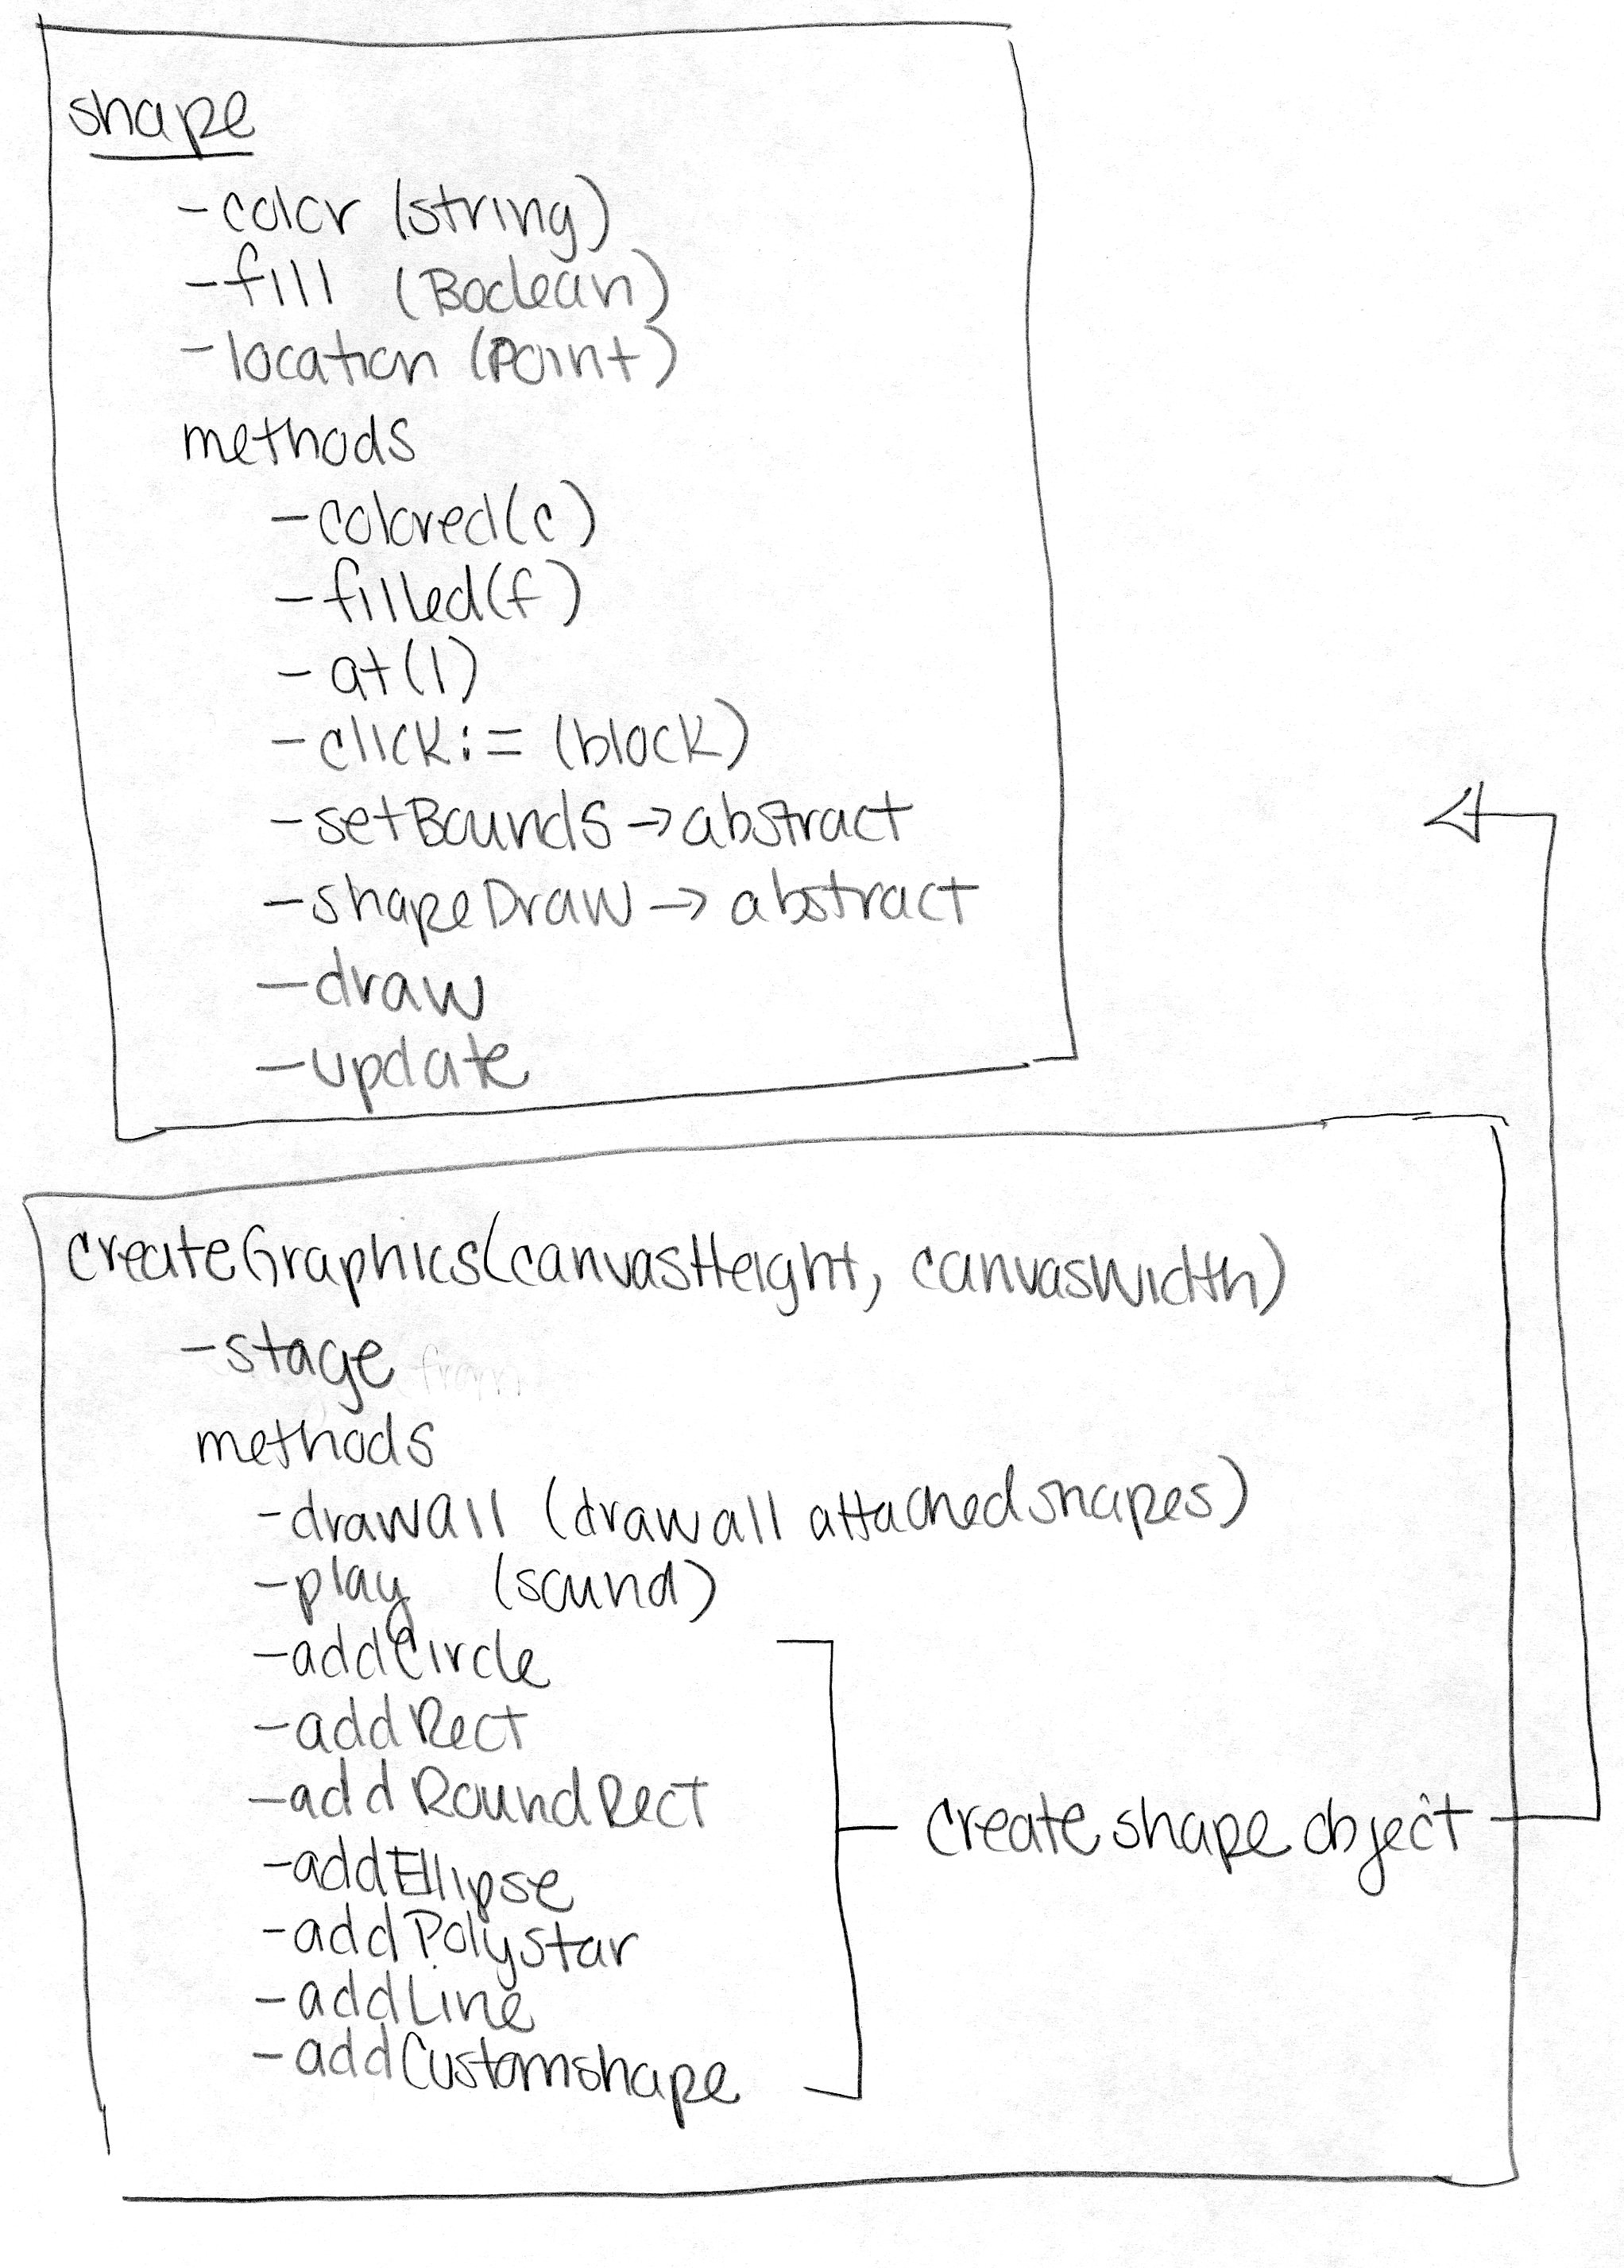 shape
- color (string)
- fill (Boolean)
- location (Point)
methods
- colored(c)
- filled(f)
- at(l)
- click := (block)
- setBounds → abstract
- shapeDraw → abstract
- draw
- update
createGraphics(canvasHeight, canvasWidth)
- stage
methods
- drawall (draw all attached shapes)
- play (sound)
- addCircle
- addRect
- addRoundRect
- addEllipse
- addPolystar
- addLine
- addCustomshape
create shape object